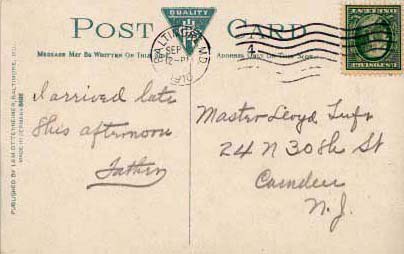 POST CARD
QUALITY
MESSAGE MAY BE WRITTEN ON THIS
ADDRESS ONLY ON THIS SIDE
BALTIMORE, MD.
SEP
12-P
1910
4
I arrived late
this afternoon
Father
Master Lloyd
24 N 30th St
Camden
N. J.
PUBLISHED BY I. & M. OTTENHEIMER, BALTIMORE, MD.
MADE IN GERMANY